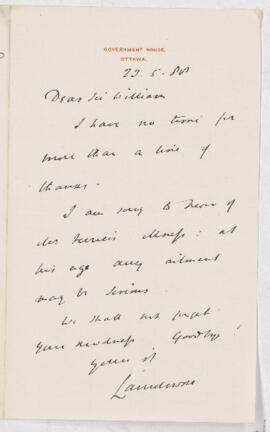 GOVERNMENT HOUSE,
OTTAWA.
23. 5. 88
Dear Sir William
I have no time for
more than a line of
thanks.
I am sorry to hear of
illness: at
his age any ailment
may be serious.
We shall not forget
your kindness Goodbye!
Yours
Lansdowne